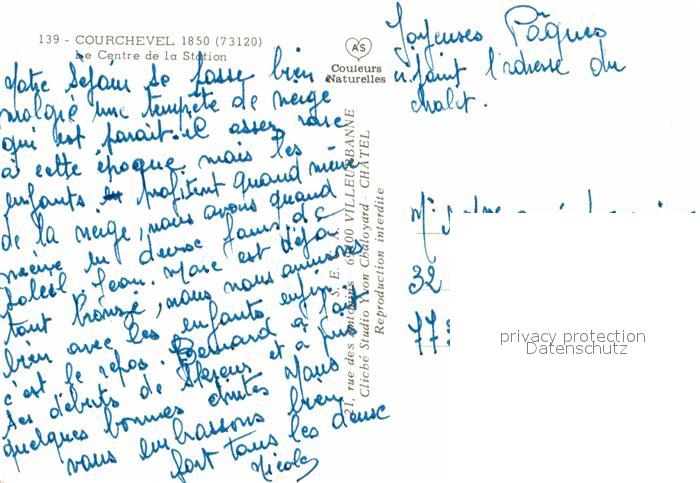 139 - COURCHEVEL 1850 (73120)
Le Centre de la Station
AS
Couleurs
Naturelles
Joyeuses Pâques
ci joint l'adresse du
chalet.
Notre séjour se passe bien
malgré une tempête de neige
qui est parait-il assez rare
à cette époque mais les
enfants profitent quand même
de la neige, nous avons quand
même eu deux jours de
soleil. Jean. Marc est déjà
tout bronzé, nous nous amusons
bien avec les enfants enfin
c'est le repos. Bernard a fait
ses débuts de skieur et a pris
quelques bonnes chutes Nous
vous embrassons bien
fort tous les deux
Nicole
S. E. S. A.
21, rue des Antonins 69100 VILLEURBANNE
Cliché Studio Yvon Chaloyard - CHÂTEL
Reproduction interdite
32
77
privacy protection
Datenschutz